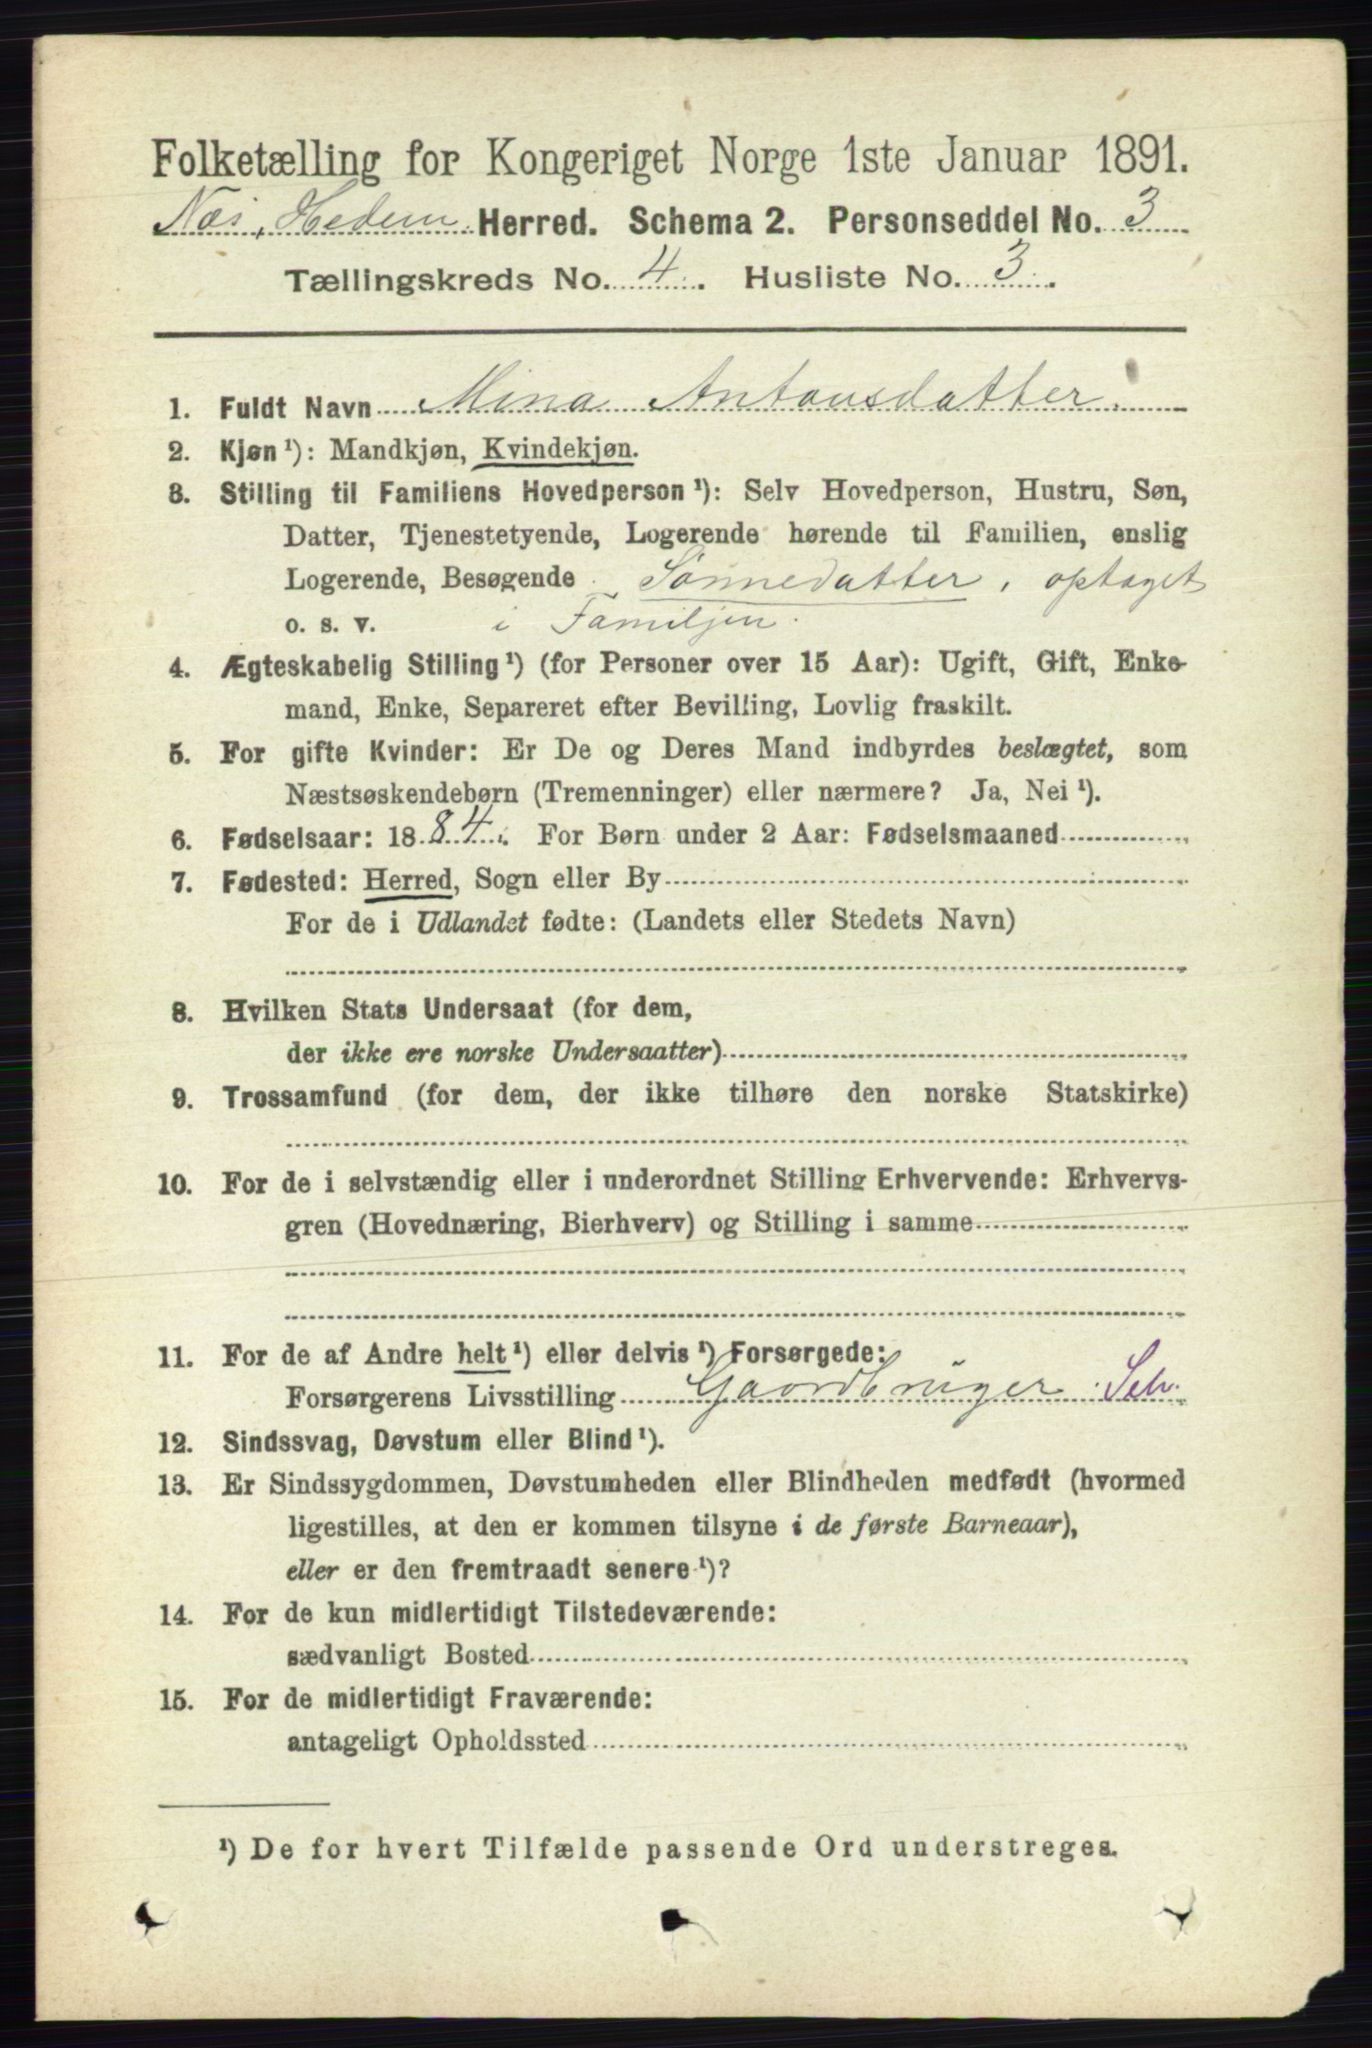 Folketælling for Kongeriget Norge 1ste Januar 1891.
Næs, Hedem. Herred. Schema 2. Personseddel No. 3
Tællingskreds No. 4. Husliste No. 3.
1. Fuldt Navn Mina Antonsdatter.
2. Kjøn ¹): Mandkjøn, Kvindekjøn.
3. Stilling til Familiens Hovedperson ¹): Selv Hovedperson, Hustru, Søn,
Datter, Tjenestetyende, Logerende hørende til Familien, enslig
Logerende, Besøgende Sønnedatter, optaget
o. s. v. i Familjen.
4. Ægteskabelig Stilling ¹) (for Personer over 15 Aar): Ugift, Gift, Enke-
mand, Enke, Separeret efter Bevilling, Lovlig fraskilt.
5. For gifte Kvinder: Er De og Deres Mand indbyrdes beslægtet, som
Næstsøskendebørn (Tremenninger) eller nærmere? Ja, Nei ¹).
6. Fødselsaar: 1884. For Børn under 2 Aar: Fødselsmaaned
7. Fødested: Herred, Sogn eller By
For de i Udlandet fødte: (Landets eller Stedets Navn)
8. Hvilken Stats Undersaat (for dem,
der ikke ere norske Undersaatter)
9. Trossamfund (for dem, der ikke tilhøre den norske Statskirke)
10. For de i selvstændig eller i underordnet Stilling Erhvervende: Erhvervs-
gren (Hovednæring, Bierhverv) og Stilling i samme
11. For de af Andre helt ¹) eller delvis ¹) Forsørgede:
Forsørgerens Livsstilling Gaardbruger Selv.
12. Sindssvag, Døvstum eller Blind ¹).
13. Er Sindssygdommen, Døvstumheden eller Blindheden medfødt (hvormed
ligestilles, at den er kommen tilsyne i de første Barneaar),
eller er den fremtraadt senere ¹)?
14. For de kun midlertidigt Tilstedeværende:
sædvanligt Bosted
15. For de midlertidigt Fraværende:
antageligt Opholdssted
¹) De for hvert Tilfælde passende Ord understreges.